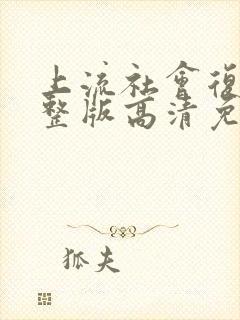 上流社會復
整版高清免
狐夫